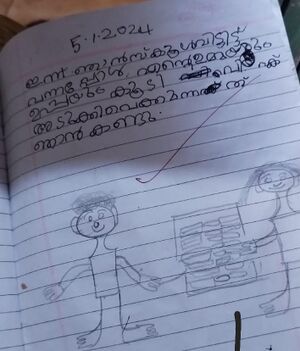 5.1.2024
ഇന്ന് ഞാൻ സ്കൂൾ വിട്ടിട്ട്
വന്നപ്പോൾ, എന്റെ ഉമ്മയും
ഉപ്പയും കൂടി വിറക്
അടുക്കിവെക്കുന്നത്
ഞാൻ കണ്ടു.